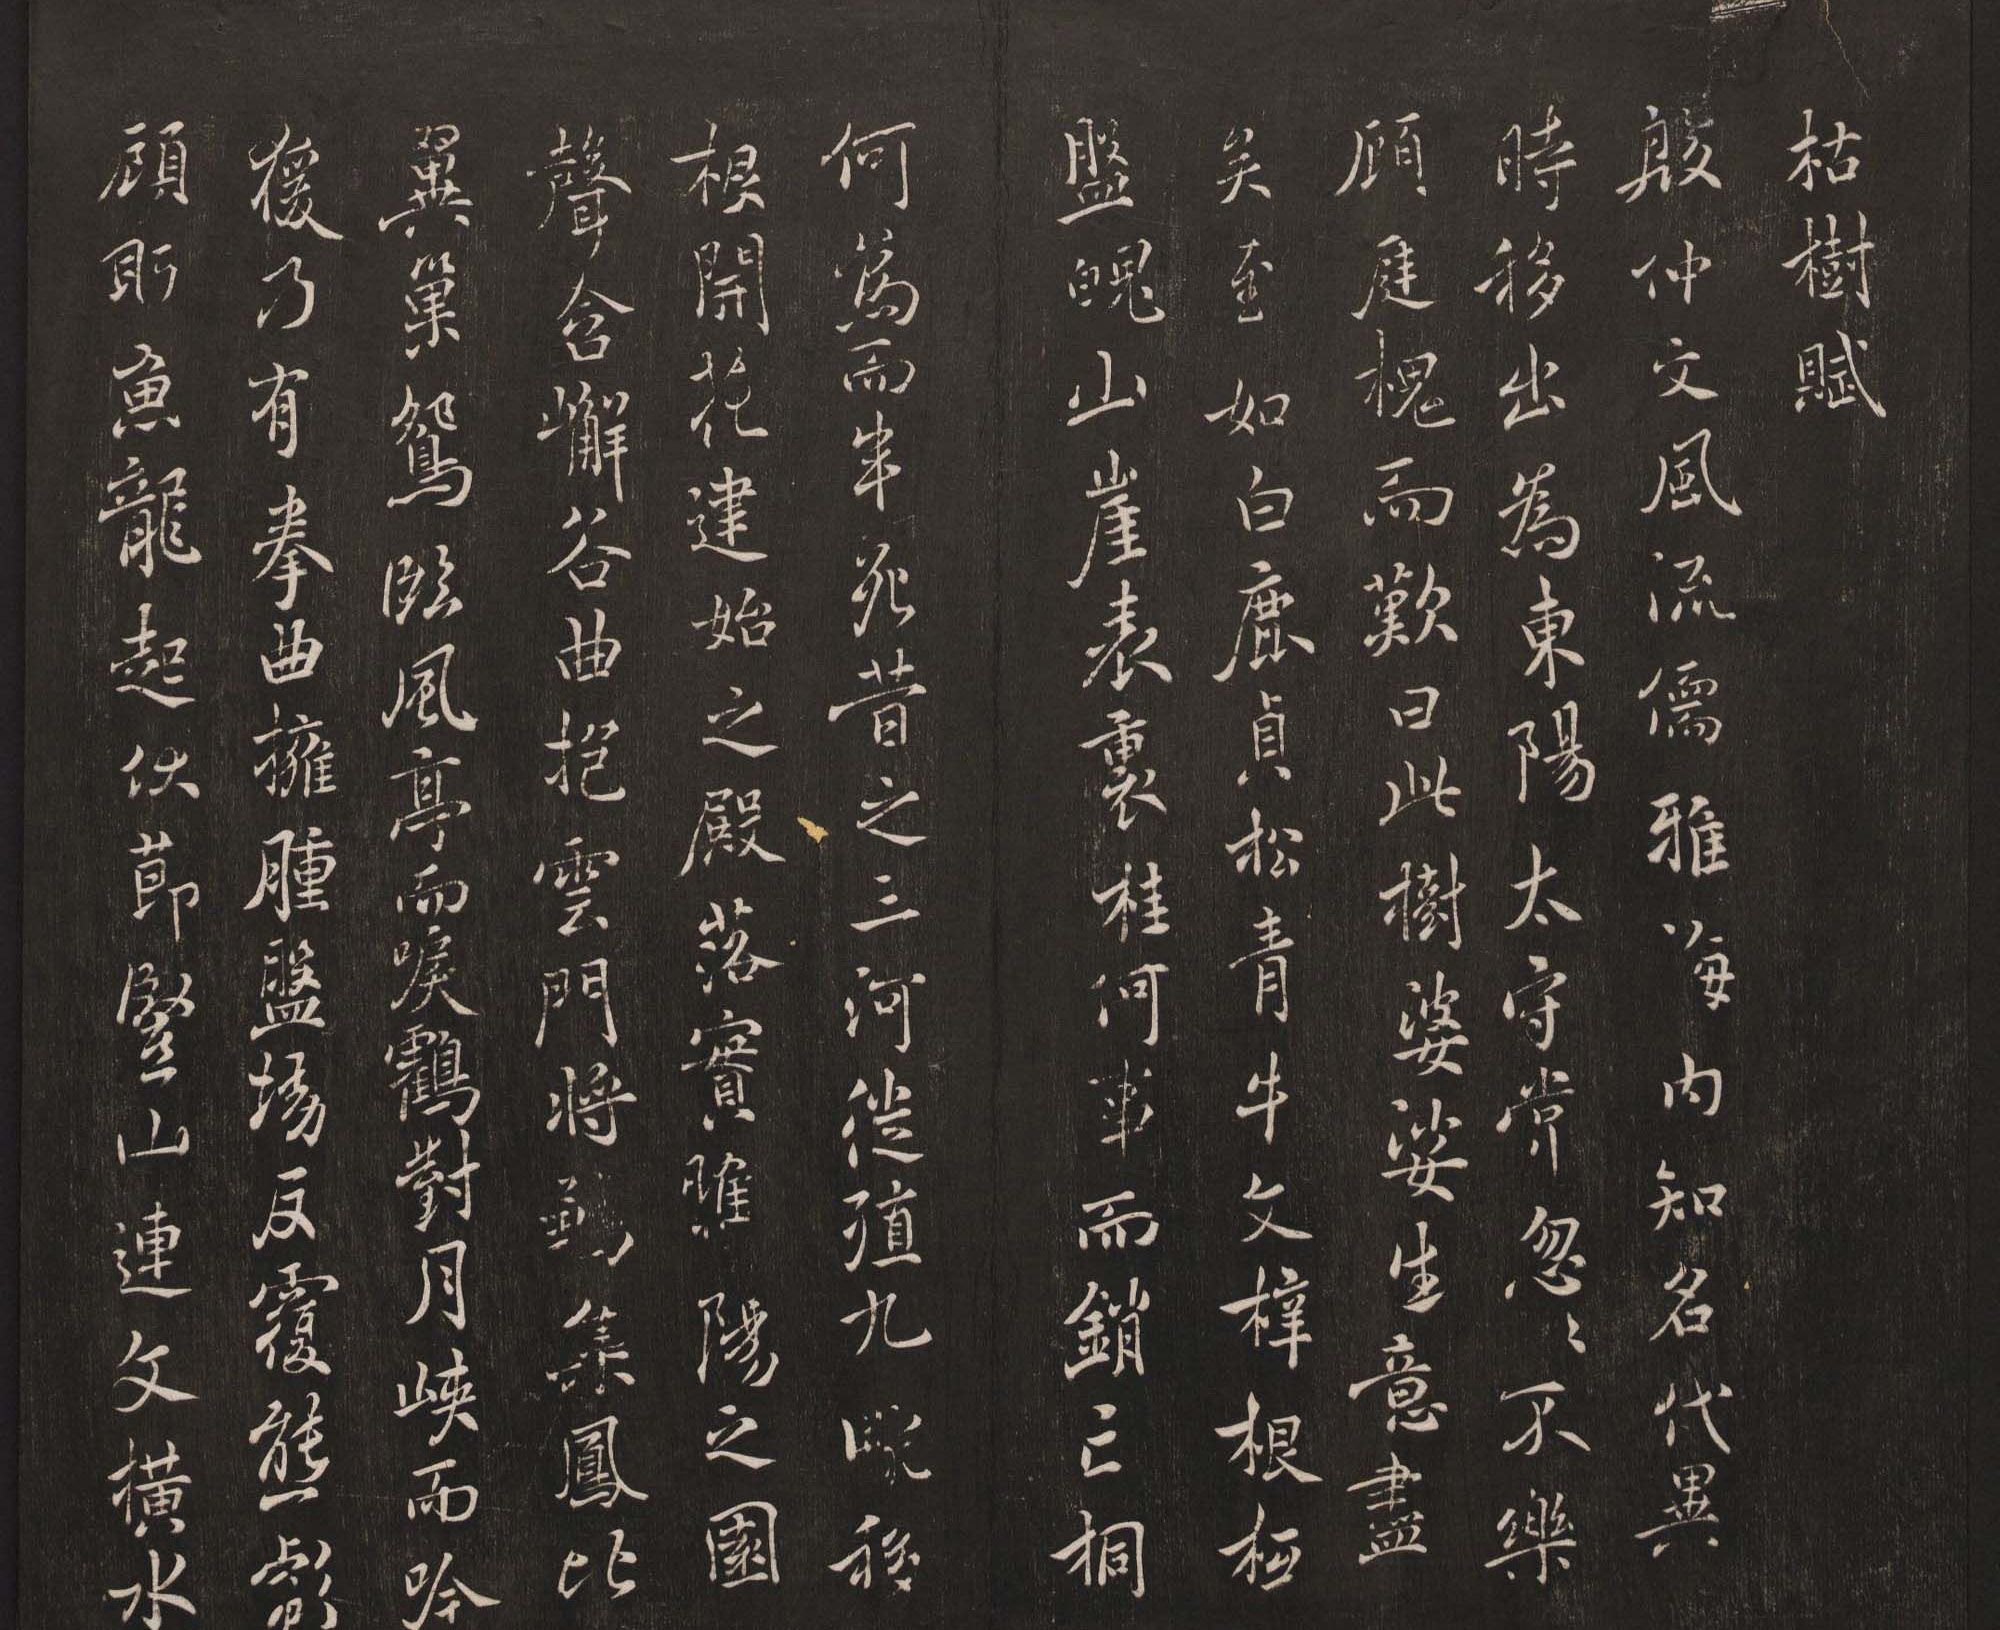 枯樹賦
殷仲文風流儒雅海內知名代異
時移出為東陽太守常忽〻不樂
顧庭槐而歎曰此樹婆娑生意盡
矣至如白鹿貞松青牛文梓根柢
盤魄山崖表裏桂何事而銷亡桐
何為而半死昔之三河徙殖九畹移
根開花建始之殿落實睢陽之園
聲含嶰谷曲抱雲門將鶵集鳳比
翼巢鴛臨風亭而唳鶴對月峽而吟
猨乃有拳曲擁腫盤坳反覆熊彪
顧盼魚龍起伏莭豎山連文橫水